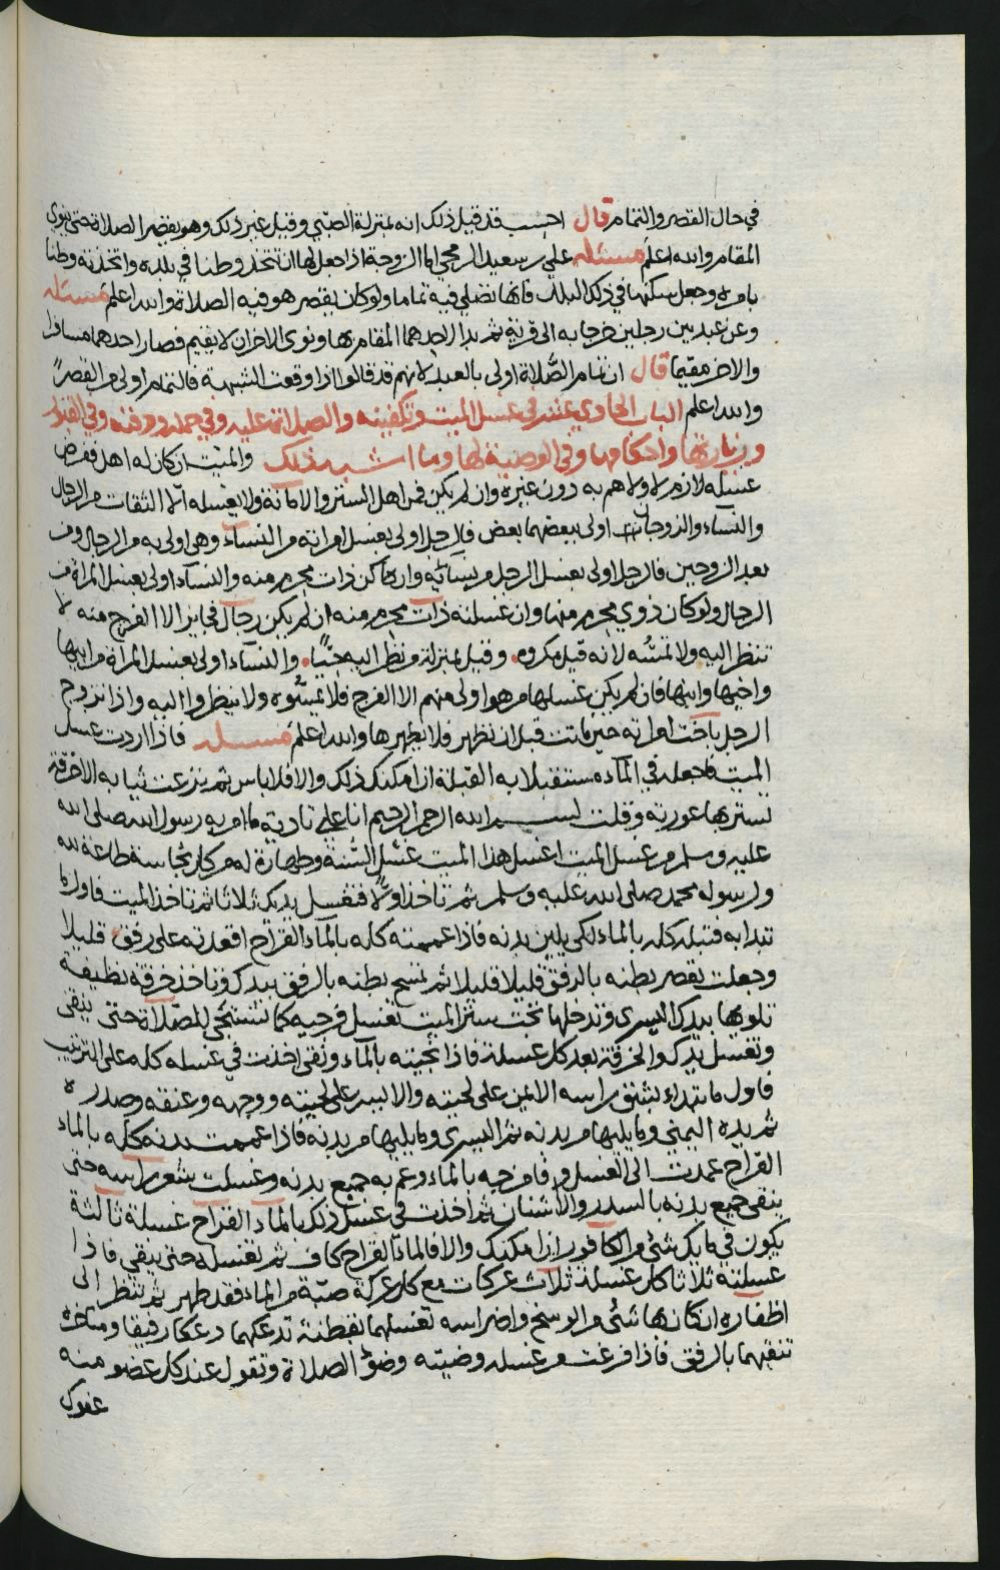 في حال القصر والتمام قال احسب قد قيل ذلك انه بمنزلة الصبي وقيل غير ذلك وهو يقصر الصلاة حتى ينوي
المقام والله اعلم مسئلة علي بن سعيد الرمحي اما الزوجة اذا جعل لها ان تتخذ وطنا في بلده واتخذته وطنا
بامره وجعل سكنها في ذلك البلد فانها تصلي فيه تماما ولو كان يقصر هو فيه الصلاة والله اعلم مسئلة
وعن عبد بين رجلين خرجا به الى قرية ثم بدا لاحدهما المقام بها ونوى الاخر ان لا يقيم فصار احدهما مسافرا
والاخر مقيما قال ان تمام الصلاة اولى بالعبد لانهم قد قالوا اذا وقعت الشبهة فالتمام اولى من القصر
والله اعلم الباب الحادي عشر في غسل الميت وتكفينه والصلاة عليه وفي حمله ودفنه وفي القبور
وزيارتها واحكامها وفي الوصية لها وما اشبه ذلك والميت ان كان له اهل ففرض
غسله لازم لاولاهم به دون غيره وان لم يكن فمن اهل الستر والامانة ولا يغسله الا الثقات من الرجال
والنساء والزوجان اولى ببعضهما بعض فالرجل اولى بغسل امراته من النساء وهي اولى به من الرجال ومن
بعد الزوجين فالرجل اولى بغسل الرجل من نسائه وان كن ذات محرم منه والنساء اولى بغسل المراة من
الرجال ولو كان ذوي محرم منها وان غسلته ذات محرم منه ان لم يكن رجال فجايز الا الفرج منه لا
تنظر اليه ولا تمسه لانه قيل مكروه وقيل بمنزلة من نظر اليه حيا والنساء اولى بغسل المراة من ابيها
واخيها وابنها فان لم يكن غسلها من هو اولى منهم الا الفرج فلا يمسوه ولا ينظروا اليه واذا تزوج
الرجل باخت امراته حين ماتت قبل ان تطهر فلا يطهرها والله اعلم مسئلة فاذا اردت غسل
الميت فاجعله في الماء مستقبلا به القبلة ان امكنك ذلك والا فلا باس ثم ينزعت ثيابه الا خرقة
تستر بها عورته وقلت بسم الله الرحمن الرحيم انا على تادية ما امر به رسول الله صلى الله
عليه وسلم من غسل الميت اغسل هذا الميت غسل السنة وطهارة له من كل نجاسة طاعة لله
ولرسوله محمد صلى الله عليه وسلم ثم تاخذ اولا فتغسل يديك ثلاثا ثم تاخذ الميت فاول ما
تبدا به فتبله كله بالماء لكي يلين بدنه فاذا عممته كله بالماء القراح اقعدته على رفق قليلا
وجعلت يقصر بطنه بالرفق قليلا قليلا ثم تمسح بطنه بالرفق بيدك وتاخذ خرقة نظيفة
تلويها بيدك اليسرى وتدخلها تحت ستر الميت تغسل فرجيه كما تستنجي للصلاة حتى ينقى
وتغسل يدك والخرقة بعد كل غسلة فاذا نجيته بالماء ونقى اخذت في غسله كله على الترتيب
فاول ما تبتداء بشق راسه الايمن على لحيته والايسر على لحيته ووجهه وعنقه وصدره
ثم يده اليمنى وما يليها من بدنه ثم اليسرى وما يليها من بدنه فاذا عممت بدنه كله بالماء
القراح عمدت الى الغسل فامزجه بالماء وعم به جميع بدنه وغسلت شعر راسه حتى
ينقى جميع بدنه بالسدر والاشنان ثم اخذت في غسل ذلك بالماء القراح غسلة ثالثة
يكون في مايك شئ من الكافور ان امكنك والا فالماء القراح كاف ثم تغسله حتى ينقى فاذا
غسلته ثلاثا كل غسلة ثلاث عركات مع كل عركة صبة من الماء فقد طهر ثم تنظر الى
اظفاره ان كان بها شئ من الوسخ واضراسه تغسلهما بقطنة تدعكهما دعكا رفيقا ومناخره
تنقيهما بالرفق فاذا فرغت من غسله وضيته وضوء الصلاة وتقول عند كل عضو منه
عفوك